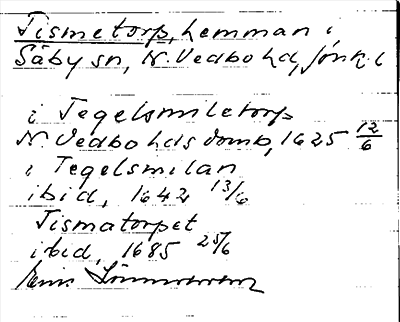 Tismetorp, hemman i
Säby sn, N. Vedbo hd, Jönk. l
i Tegelsmiletorp
N. Vedbo hds domb, 1625 12/6
i Tegelsmilan
ibid, 1642 13/6
Tismatorpet
ibid, 1685 25/6